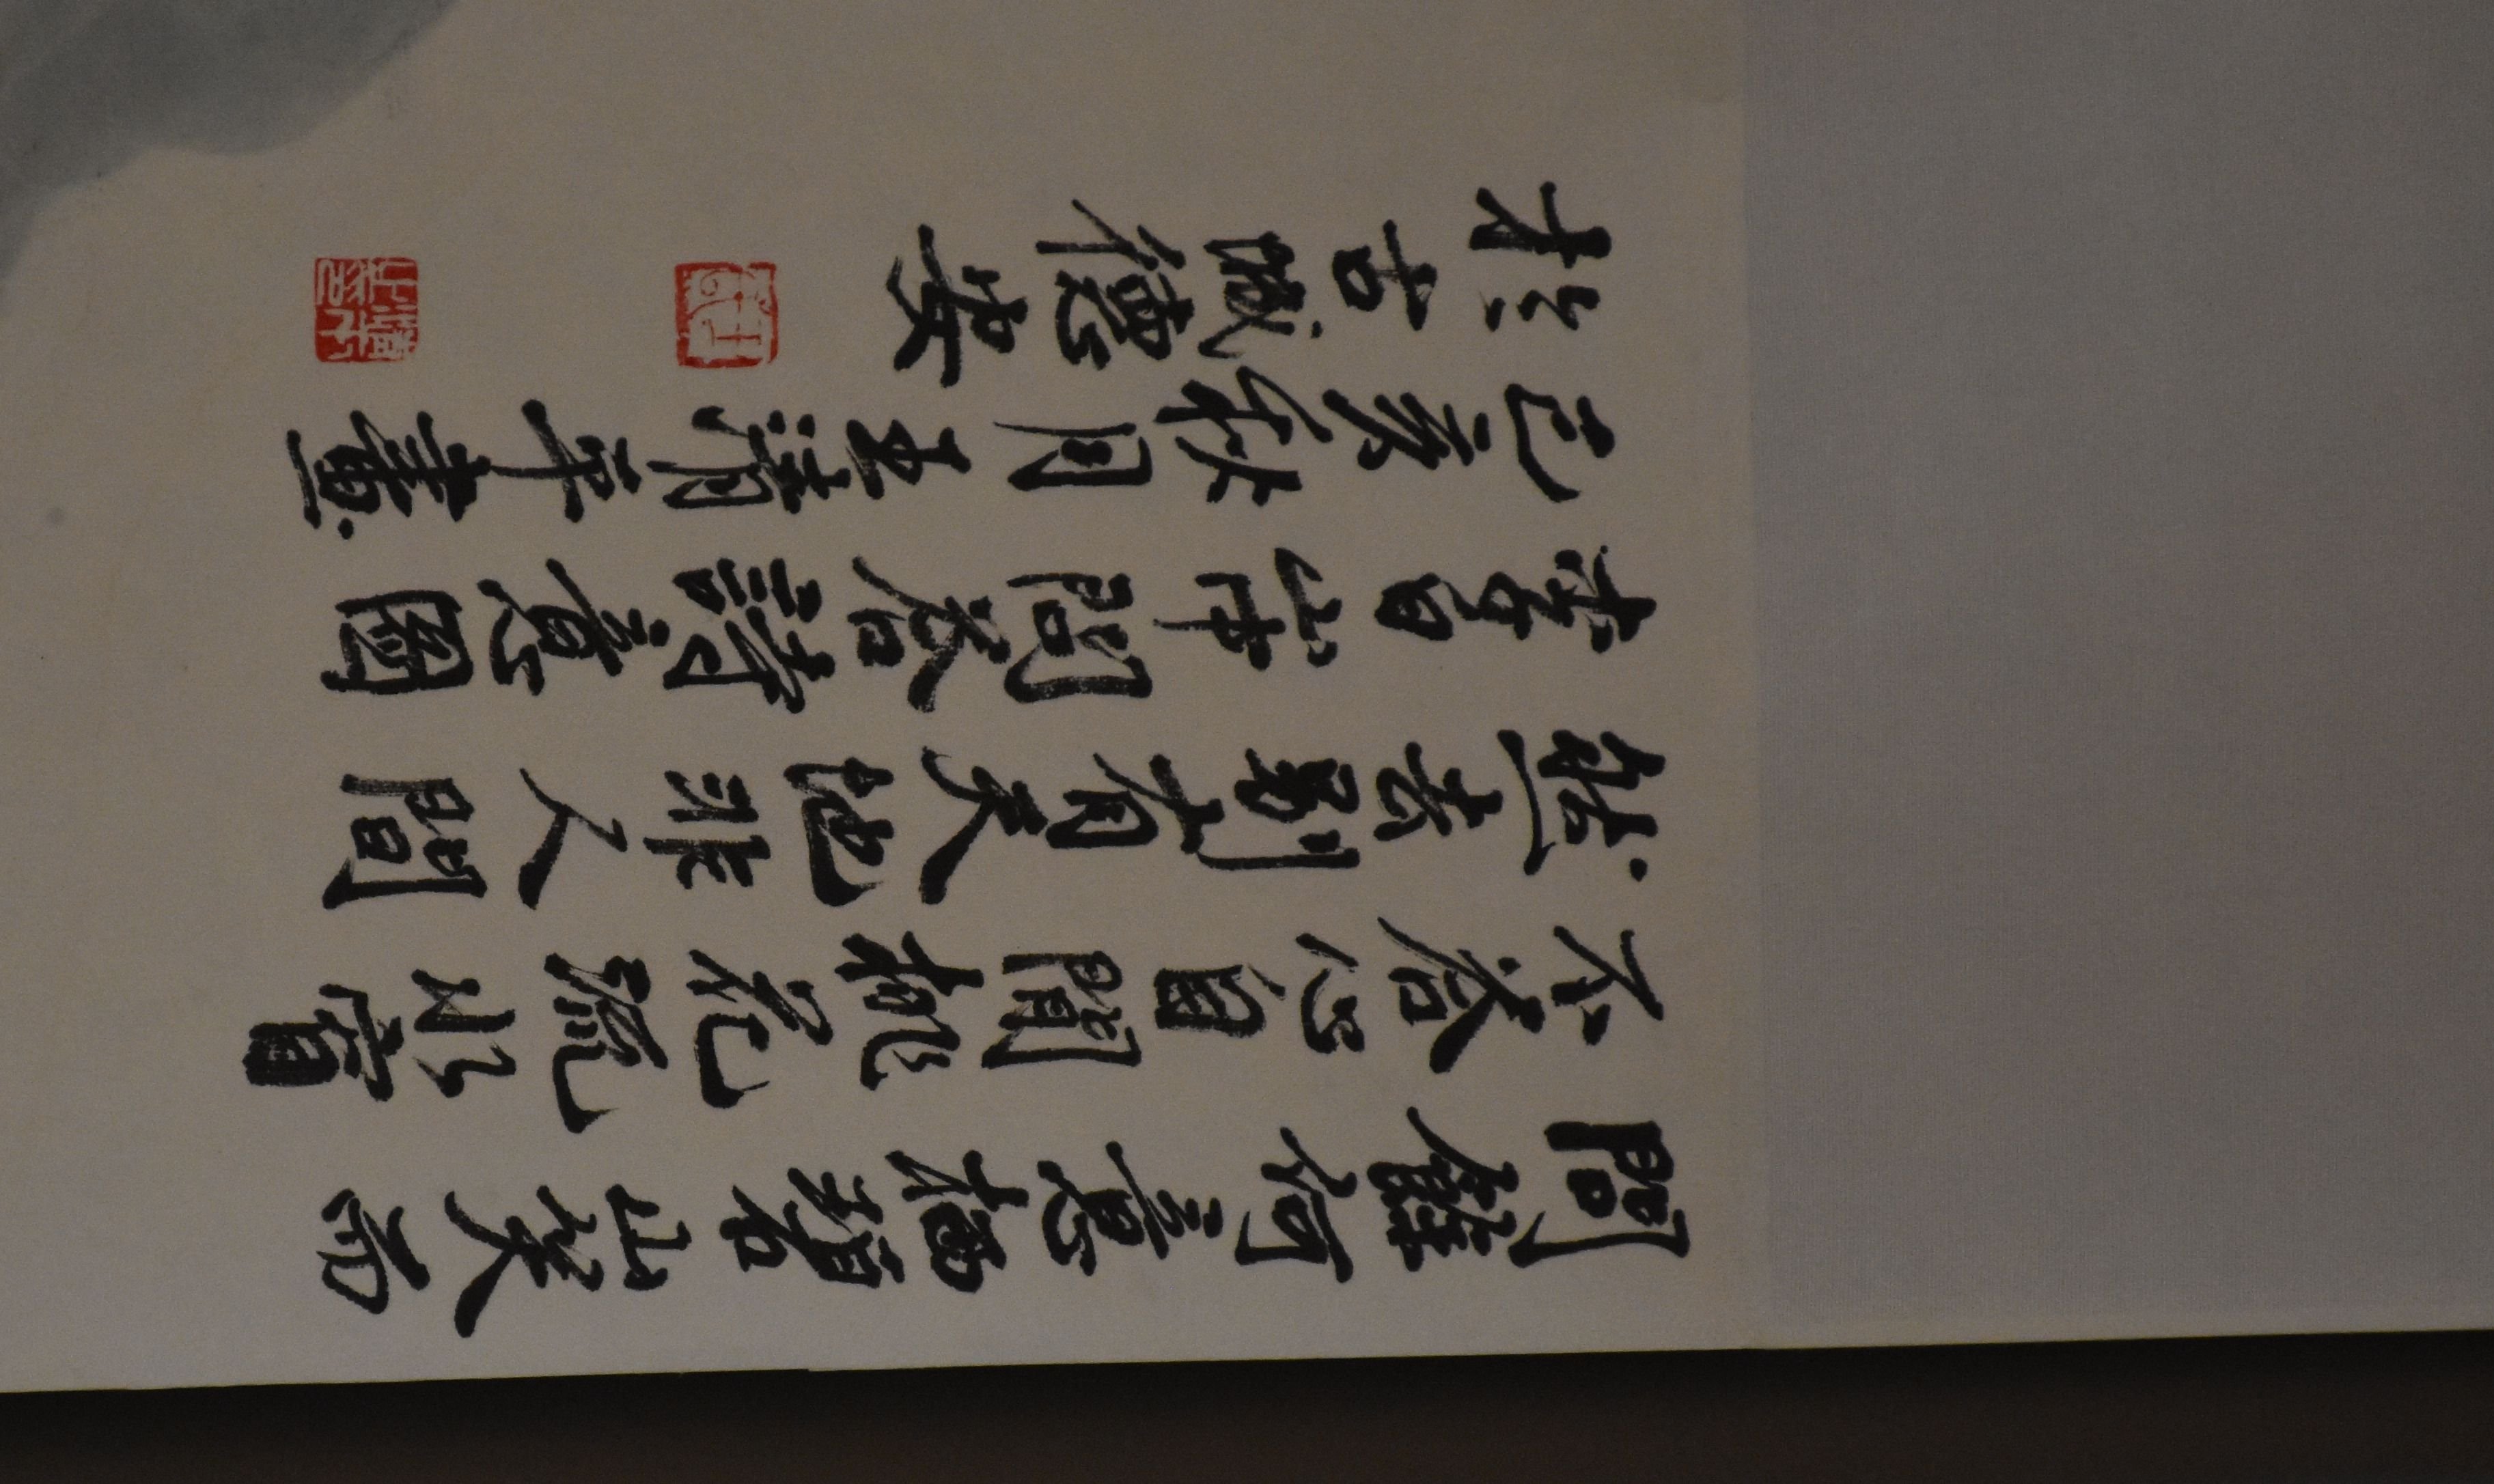 問餘何意棲碧山笑而
不答心自閒桃花流水窅
然去別有天地非人間
李白山中問答詩意圖
己亥秋月清平畫
於古臧德安